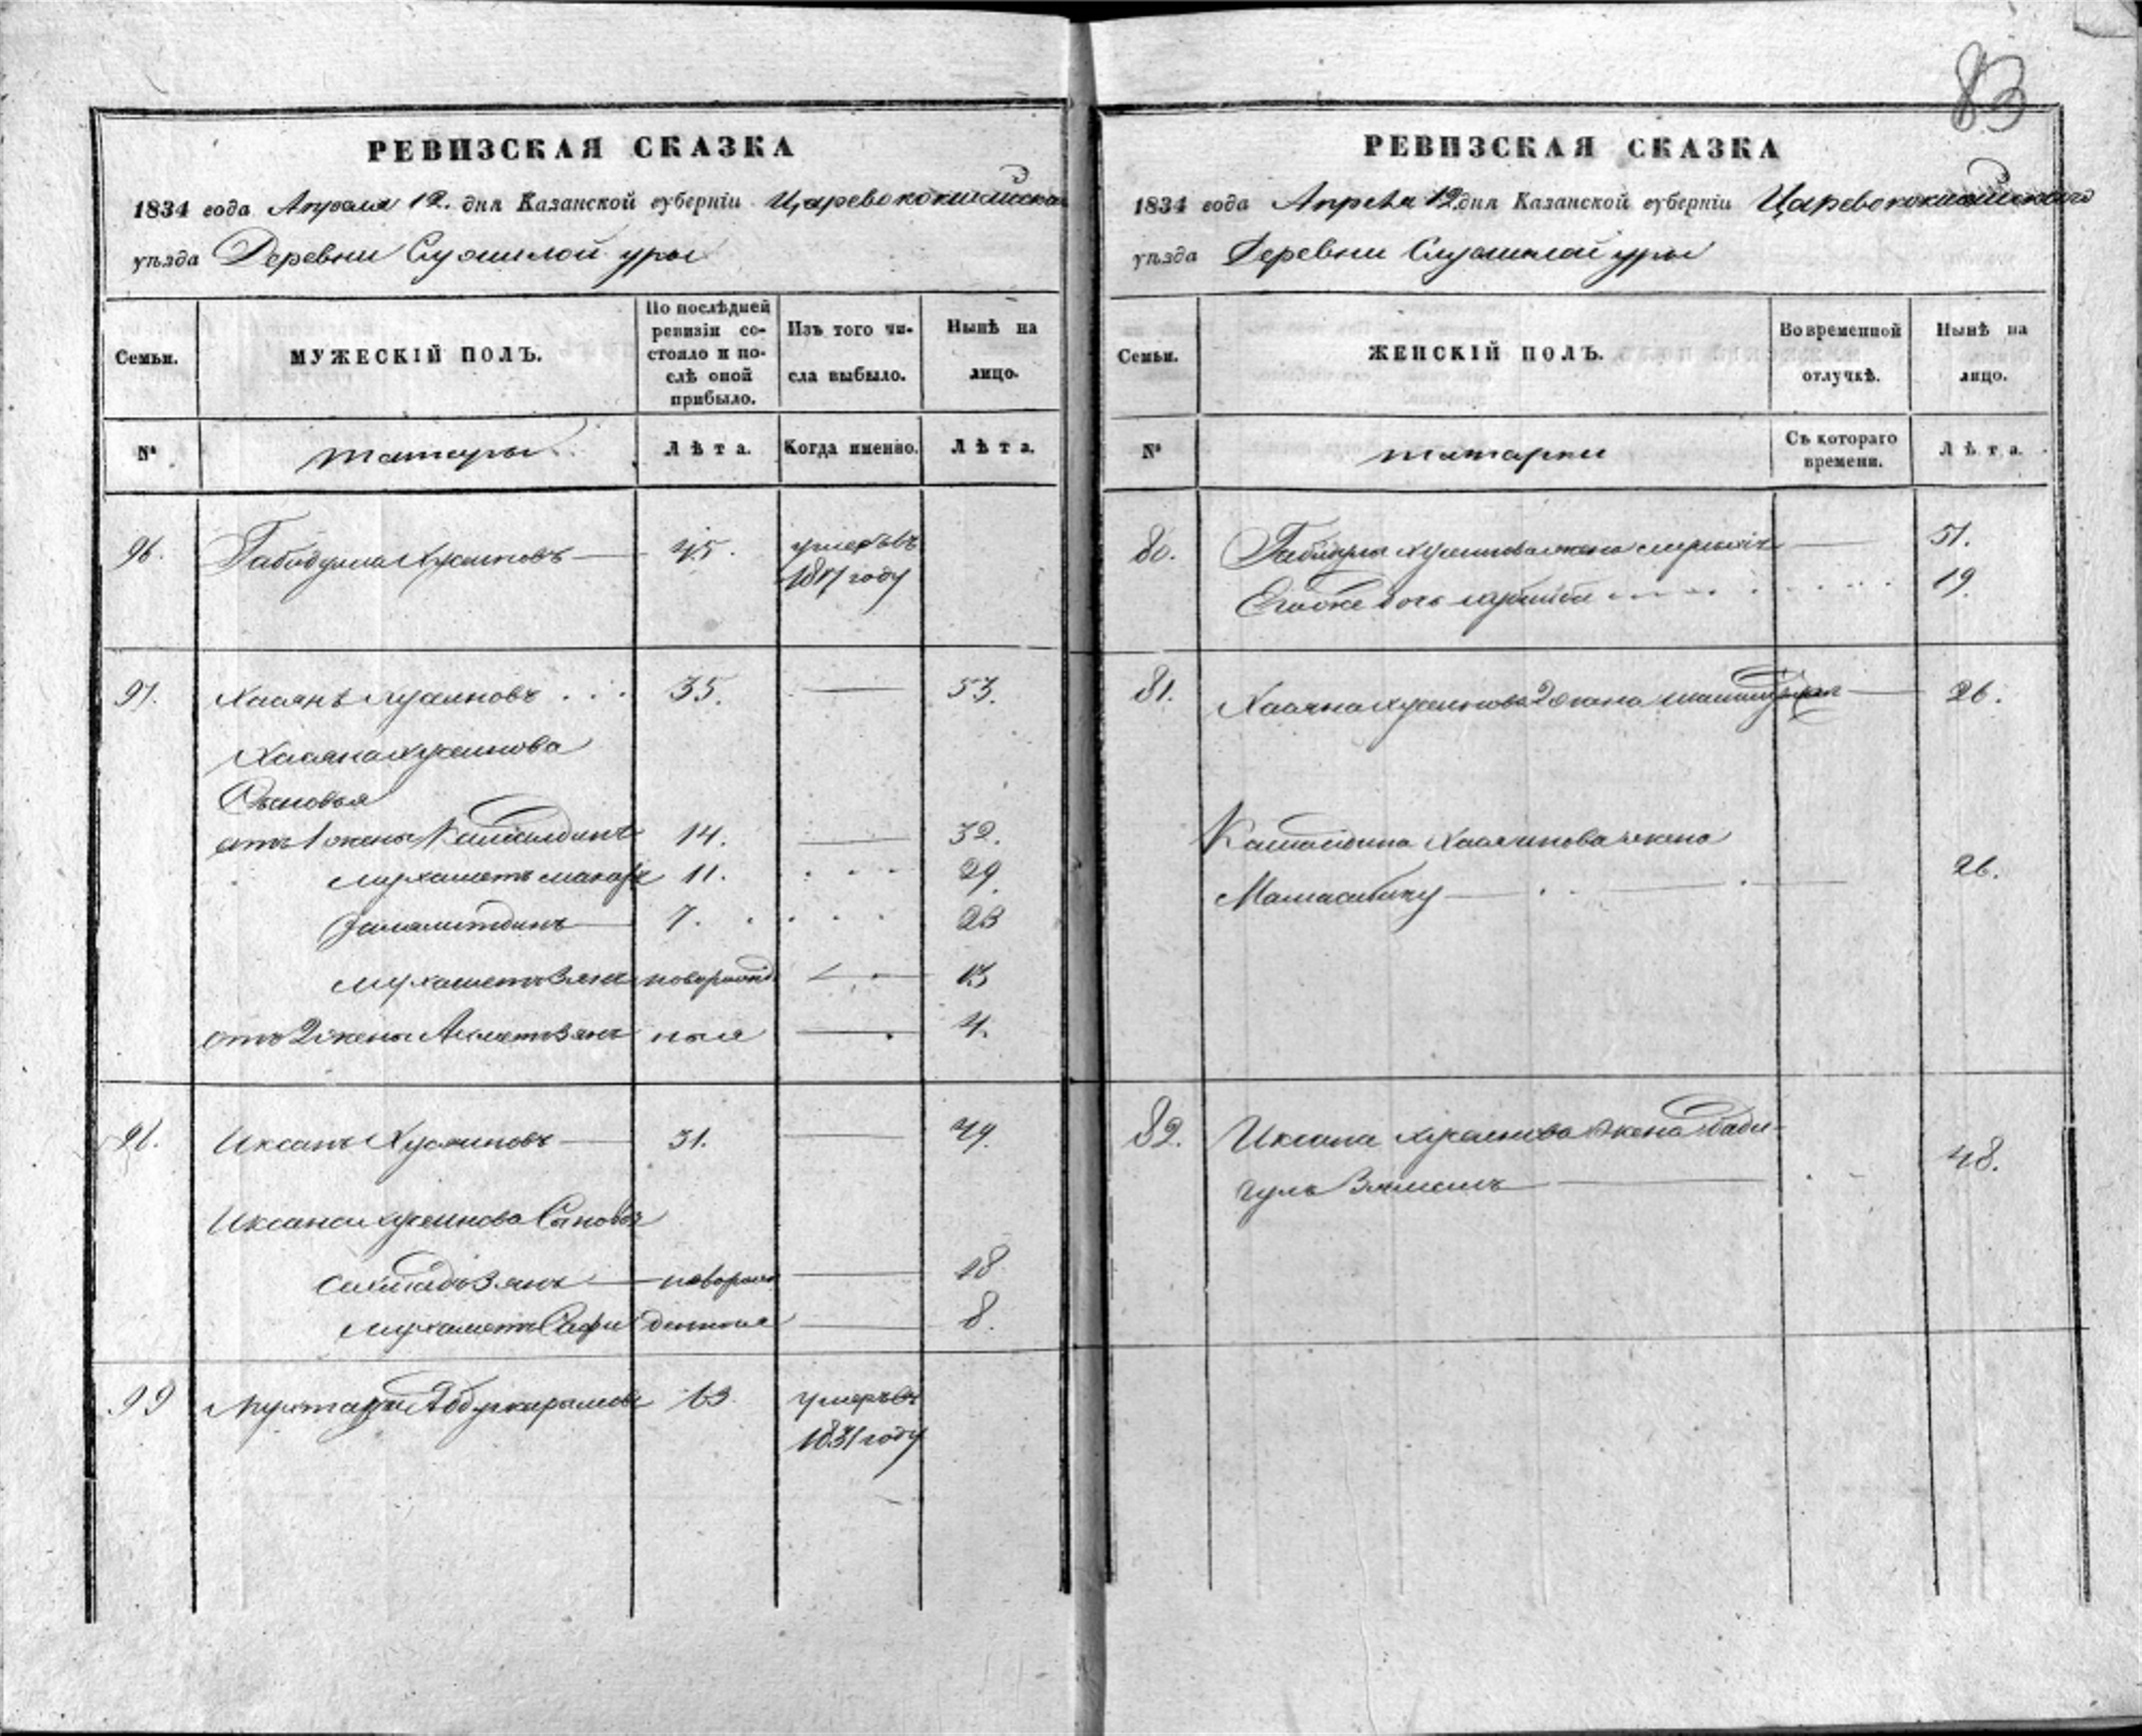 83
РЕВИЗСКАЯ СКАЗКА
1834 года Апреля 12. дня Казанской губерніи Царевококшайска
уѣзда Деревни Служилой уры
Семьи.
МУЖЕСКІЙ ПОЛЪ.
По послѣдней
ревизіи со-
стояло и по-
слѣ оной
прибыло.
Изъ того чи-
сла выбыло.
Нынѣ на
лицо.
№
татары
Лѣта.
Когда именно.
Лѣта.
96. Габодулла Хусаиновъ 45. умеръ въ
1817 году
97. Хасянъ Хусаиновъ 35. 53.
Хасяна Хусаинова
Сыновья
отъ 1 жены 14. 32.
11. 29.
7. 23
Мухаметзянъ новорожд 13
отъ 2 жены Ахметзянъ ныя 4.
98. Иксанъ Хусаиновъ 31. 49.
Иксана Хусаинова Сыновья
новорож 18
Мухаметъ Сафи денныя 8.
99 Абдулкаримовъ 63. умеръ въ
1831 году
РЕВИЗСКАЯ СКАЗКА
1834 года Апреля 12 дня Казанской губерніи Царевококшайскаго
уѣзда Деревни Служилой уры
Семьи.
ЖЕНСКІЙ ПОЛЪ.
Во временной
отлучкѣ.
Нынѣ на
лицо.
№
татарки
Съ котораго
времени.
Лѣта.
80. Хусаинова жена 51.
дочь 19.
81. Хасяна Хусаинова 2 жена 26.
Хасянова жена
26.
82. Иксана Хусаинова жена Бади-
гуль 48.